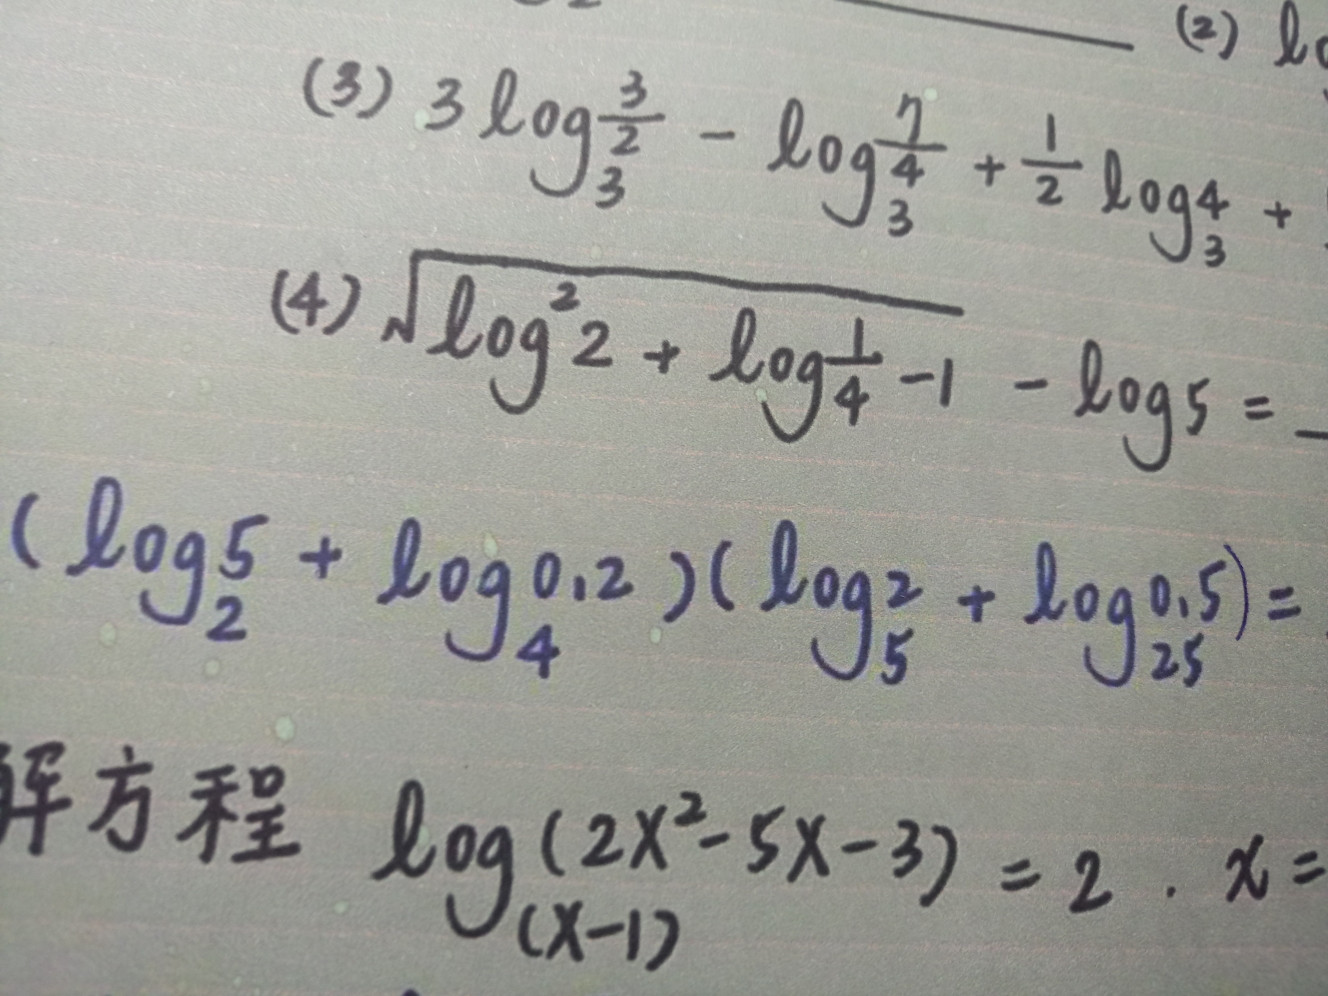 (2) lo
(3) 3 log₃ 3/2 - log₃ 7/4 + 1/2 log₃ 4 +
(4) √(log² 2 + log 1/4 - 1) - log 5 =
(log₂ 5 + log₄ 0.2)(log₅ 2 + log₂₅ 0.5) =
解方程 log₍ₓ₋₁₎ (2x² - 5x - 3) = 2 . x =